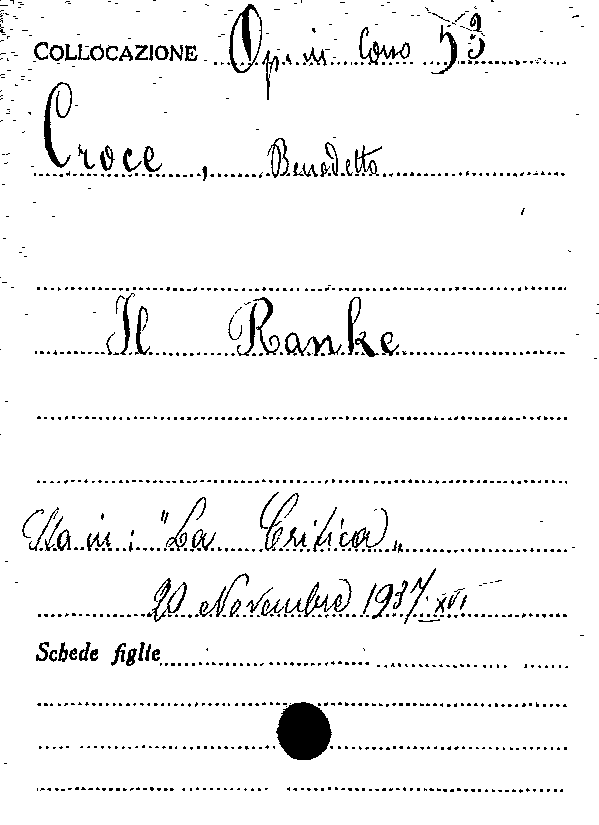 COLLOCAZIONE Op. in Cons 53
Croce, Benedetto
Il Ranke
Sta in: "La Critica„
20 Novembre 1937 XVI
Schede figlie